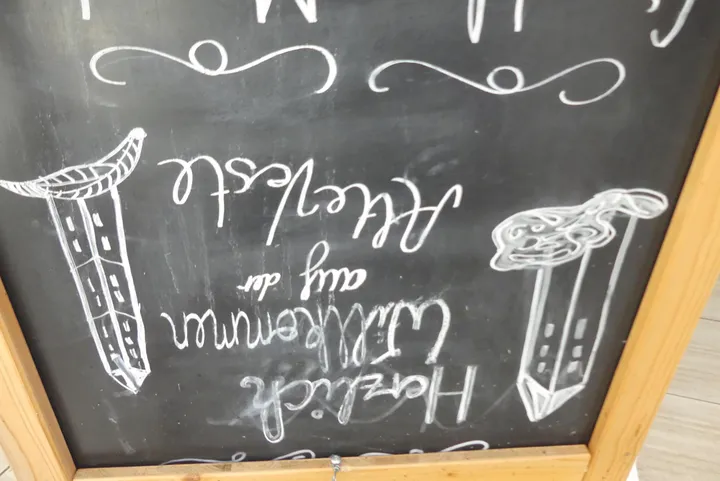 Herzlich
Willkommen
auf der
Alte Veste